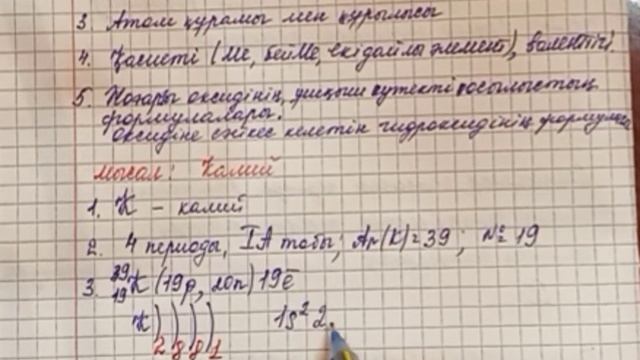 3. Атом құрамы мен құрылысы
4. Қасиеті (Ме, бейМе, екідайлы элемент), валенттігі
5. Жоғары оксидінің, ұшқыш сутекті қосылыстың
формулалары.
оксидіне сәйкес келетін гидроксидінің формуласы
мысал: Калий
1. K – калий
2. 4 периоды, IA тобы; Ar(K)=39; №19
3. ³⁹₁₉K (19p, 20n) 19ē
K ) ) ) ) 1s² 2
2 8 8 1